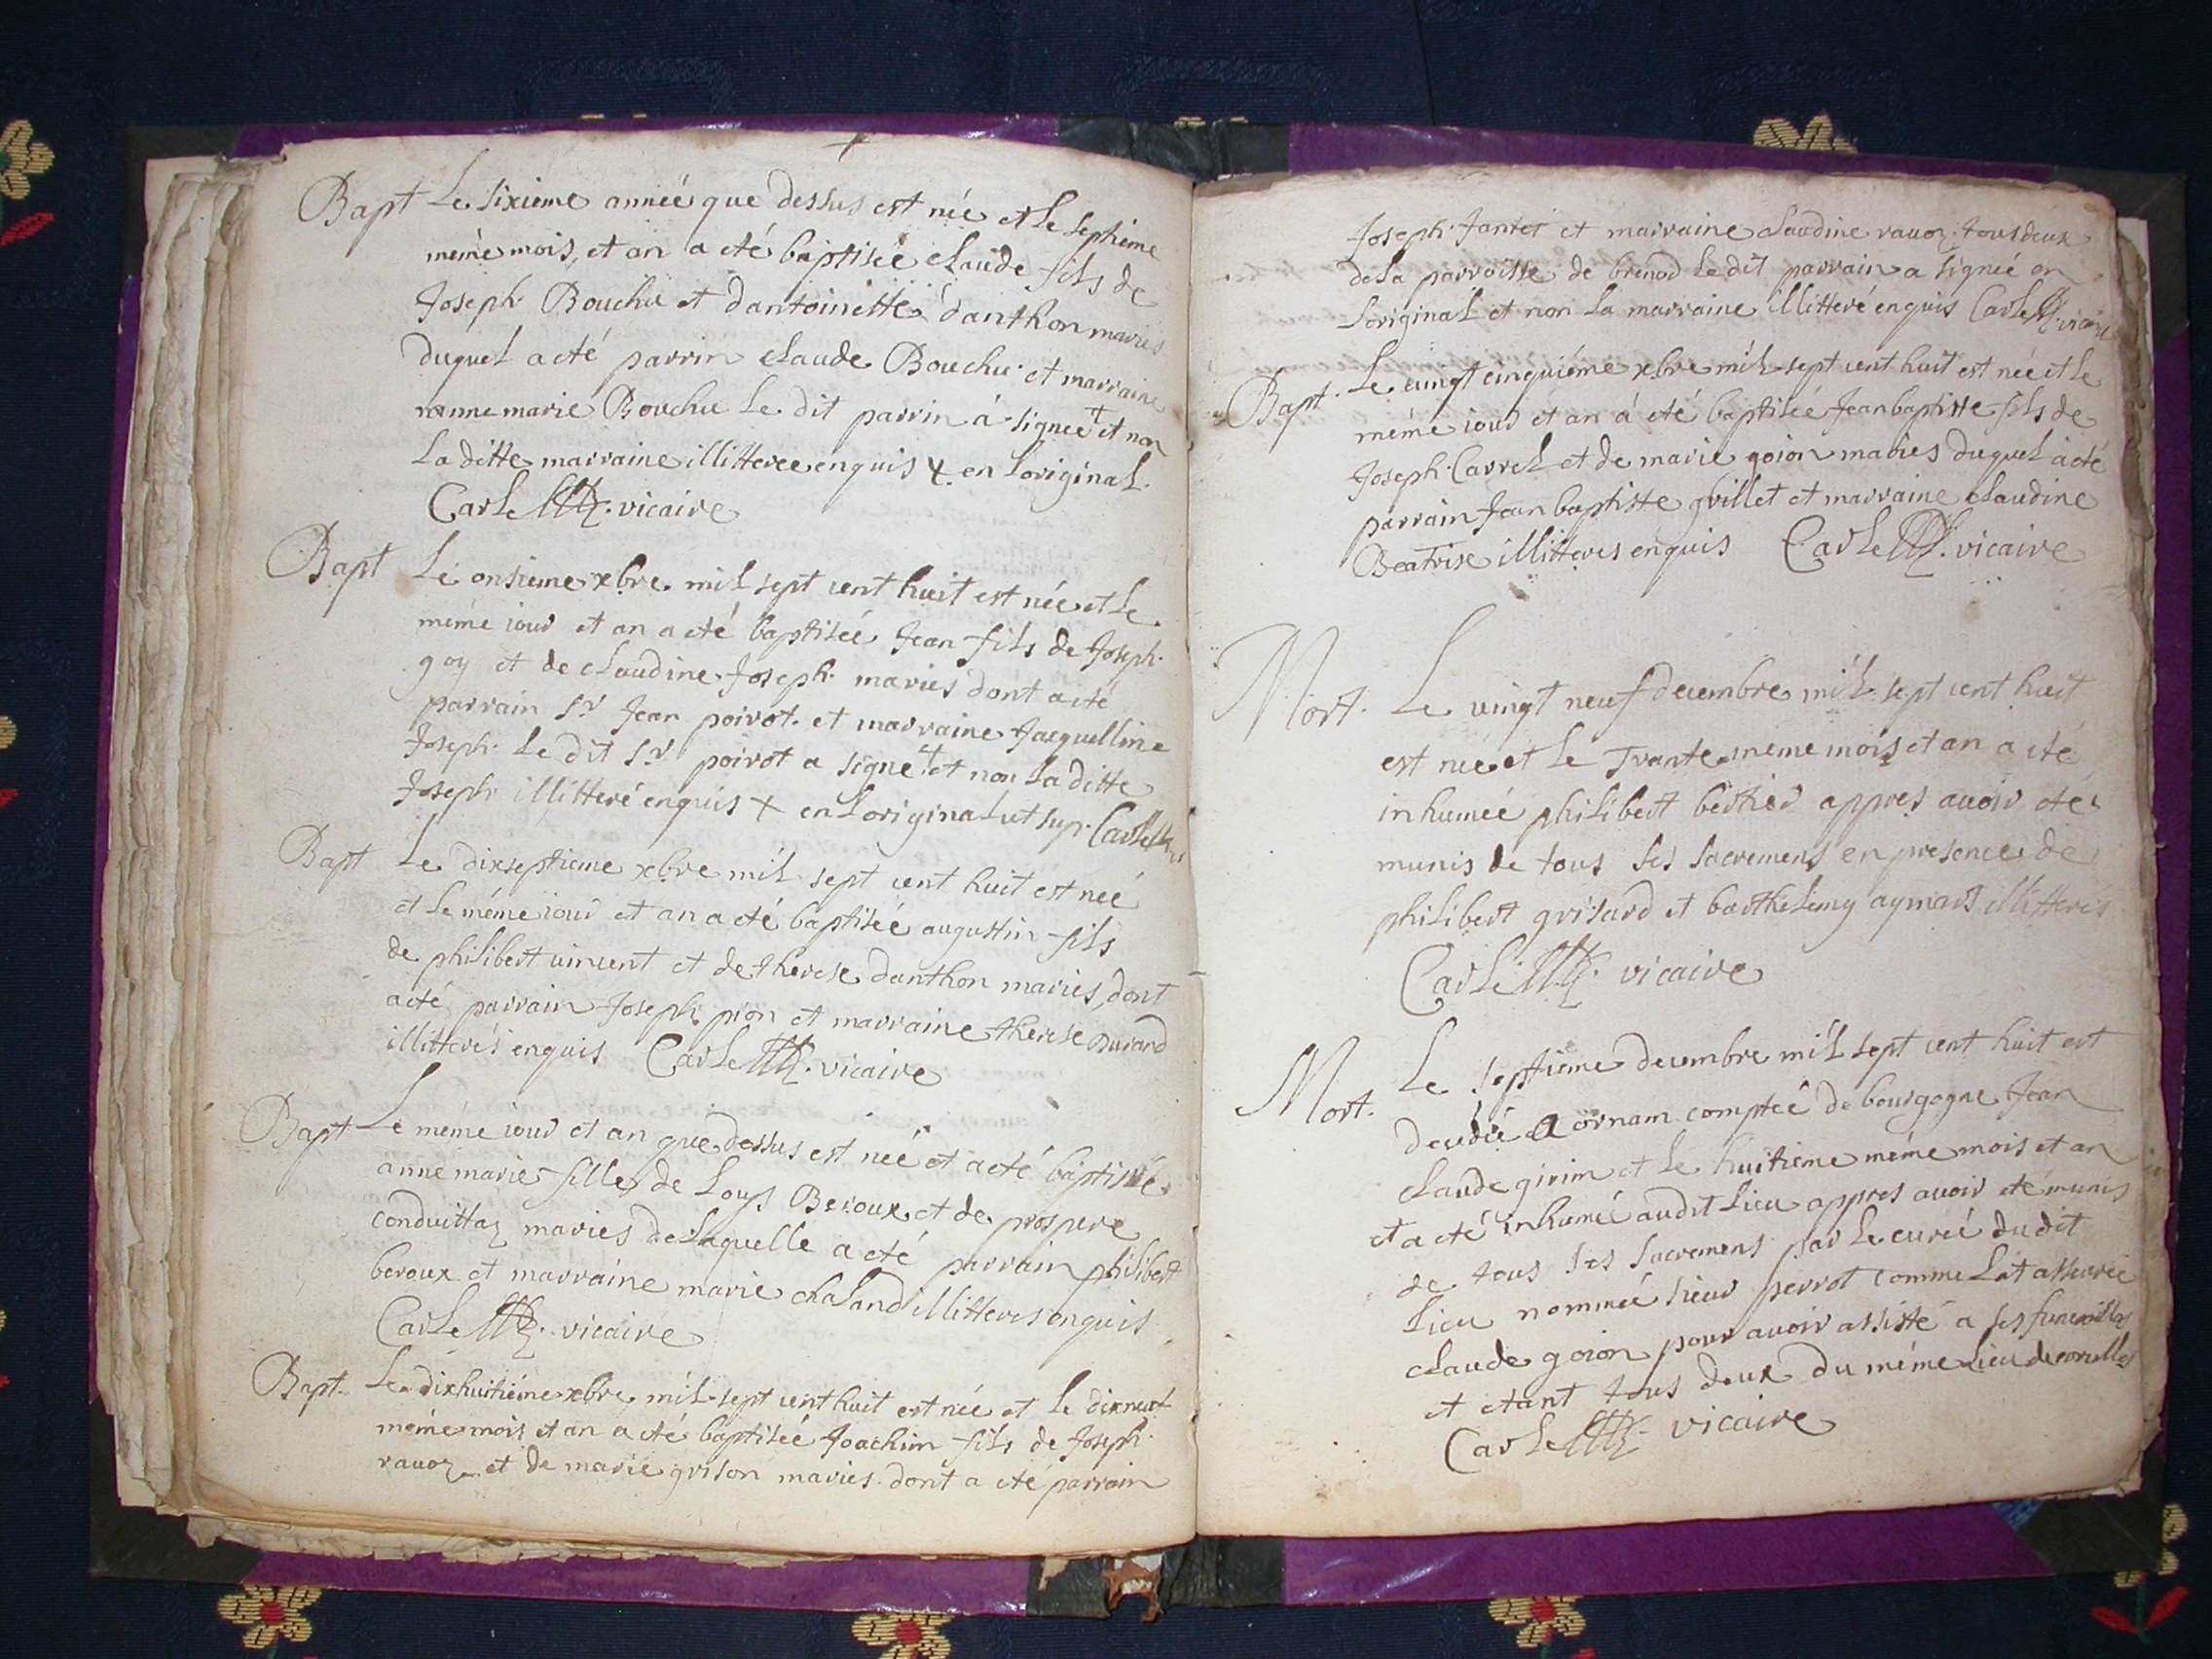 Bapt Le sixieme anneé que dessus est neé et le septieme
même mois, et an a eté baptiseé claude fils de
Joseph Bouchu et dantoinette danthon maries
duquel a eté parrin claude Bouchu et marraine
anne marie Bouchu le dit parrin á signeé + et non
la ditte marraine illitteree enquis + en loriginal.
Carle vicaire
Bapt Le onsieme xbre mil sept cent huit est neé et le
même iour et an a eté baptiseé Jean fils de Joseph
goy et de claudine Joseph maries dont a eté
parrain sr Jean poirot et marraine Jacquelline
Joseph le dit sr poirot a signé + et non la ditte
Joseph illitteré enquis + en loriginal ut sup. Carle
Bapt Le dixseptieme xbre mil sept cent huit est neé
et le même iour et an a eté baptiseé augustin fils
de philibert vincent et de therese danthon maries, dont
a eté parrain Joseph pion et marraine therese Durand
illitterés enquis Carle vicaire
Bapt Le même iour et an que dessus est neé et a eté baptisée
anne marie fille de Louys Beroux et de prospere
conduittaz maries de laquelle a eté parrain philibert
beroux et marraine marie chaland illitteres enquis
Carle vicaire
Bapt. Le dixhuitiéme xbre mil sept cent huit est neé et le dixneuf
même mois et an a eté baptiseé Joachim fils de Joseph
ravoz et de marie grison maries dont a eté parrain
Joseph Jantet et marraine claudine ravoz tous deux
de la parroisse de brenod le dit parrain a signeé en
loriginal et non la marraine illitteré enquis Carle vicaire
Bapt. Le vingt cinquiéme xbre mil sept cent huit est neé et le
même iour et an á eté baptiseé Jean baptiste fils de
Joseph Carrel et de marie goion maries duquel á eté
parrain Jean baptiste grillet et marraine claudine
Beatrise illitteres enquis Carle vicaire
Mort. Le vingt neuf decembre mil sept cent huit
est neé et le Trante même mois et an a eté
inhumeé philibert bertier appres avoir eté
munis de tous ses sacremens en presence de
philibert grisard et barthelemy aymard illitterés
Carle vicaire
Mort. Le septieme decembre mil sept cent huit est
decedé a ornam compteé de bourgogne Jean
claude girin et le huitieme même mois et an
et a eté inhumé audit lieu appres avoir eté munis
de tous ses sacremens par le cureé dudit
lieu nommeé sieur perrot comme lat asseureé
claude goion pour avoir assisté a ses funerailles
et etant tous deux du même lieu de corcelles
Carle vicaire